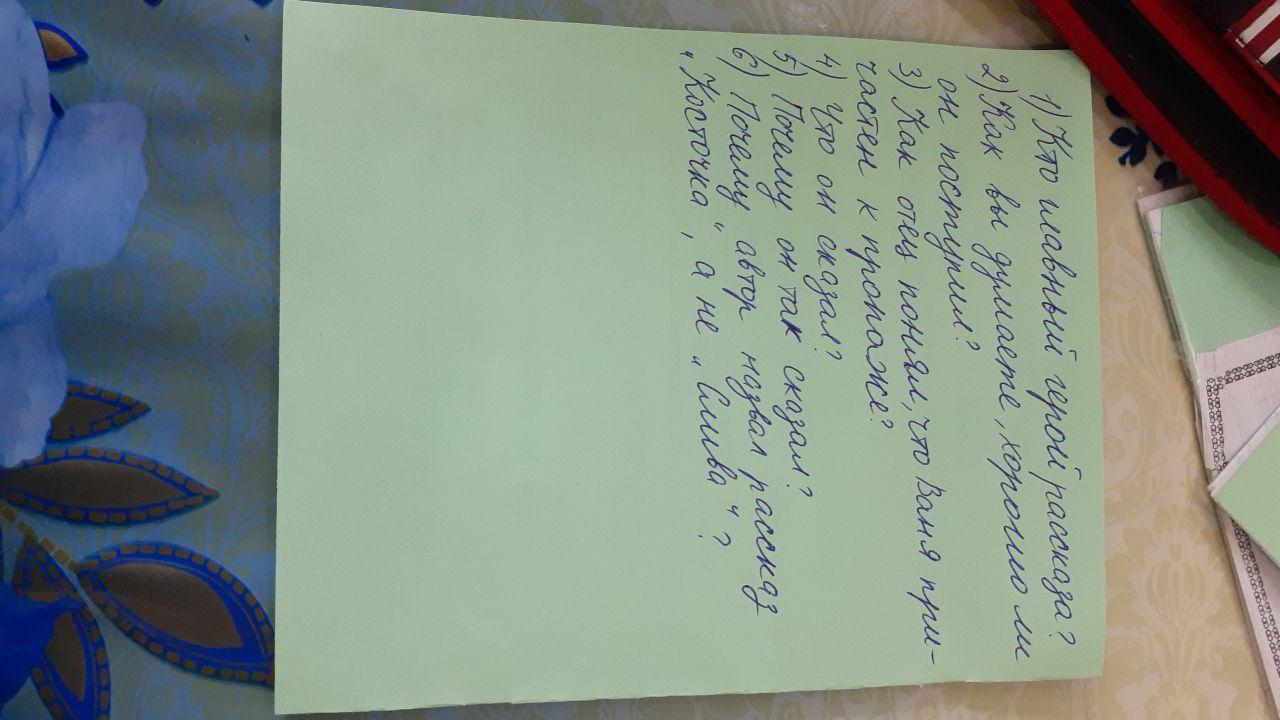 1) Кто главный герой рассказа?
2) Как вы думаете, хорошо ли
он поступил?
3) Как отец понял, что Ваня при-
частен к пропаже?
4) Что он сказал?
5) Почему он так сказал?
6) Почему автор назвал рассказ
„Косточка“, а не „Слива“?